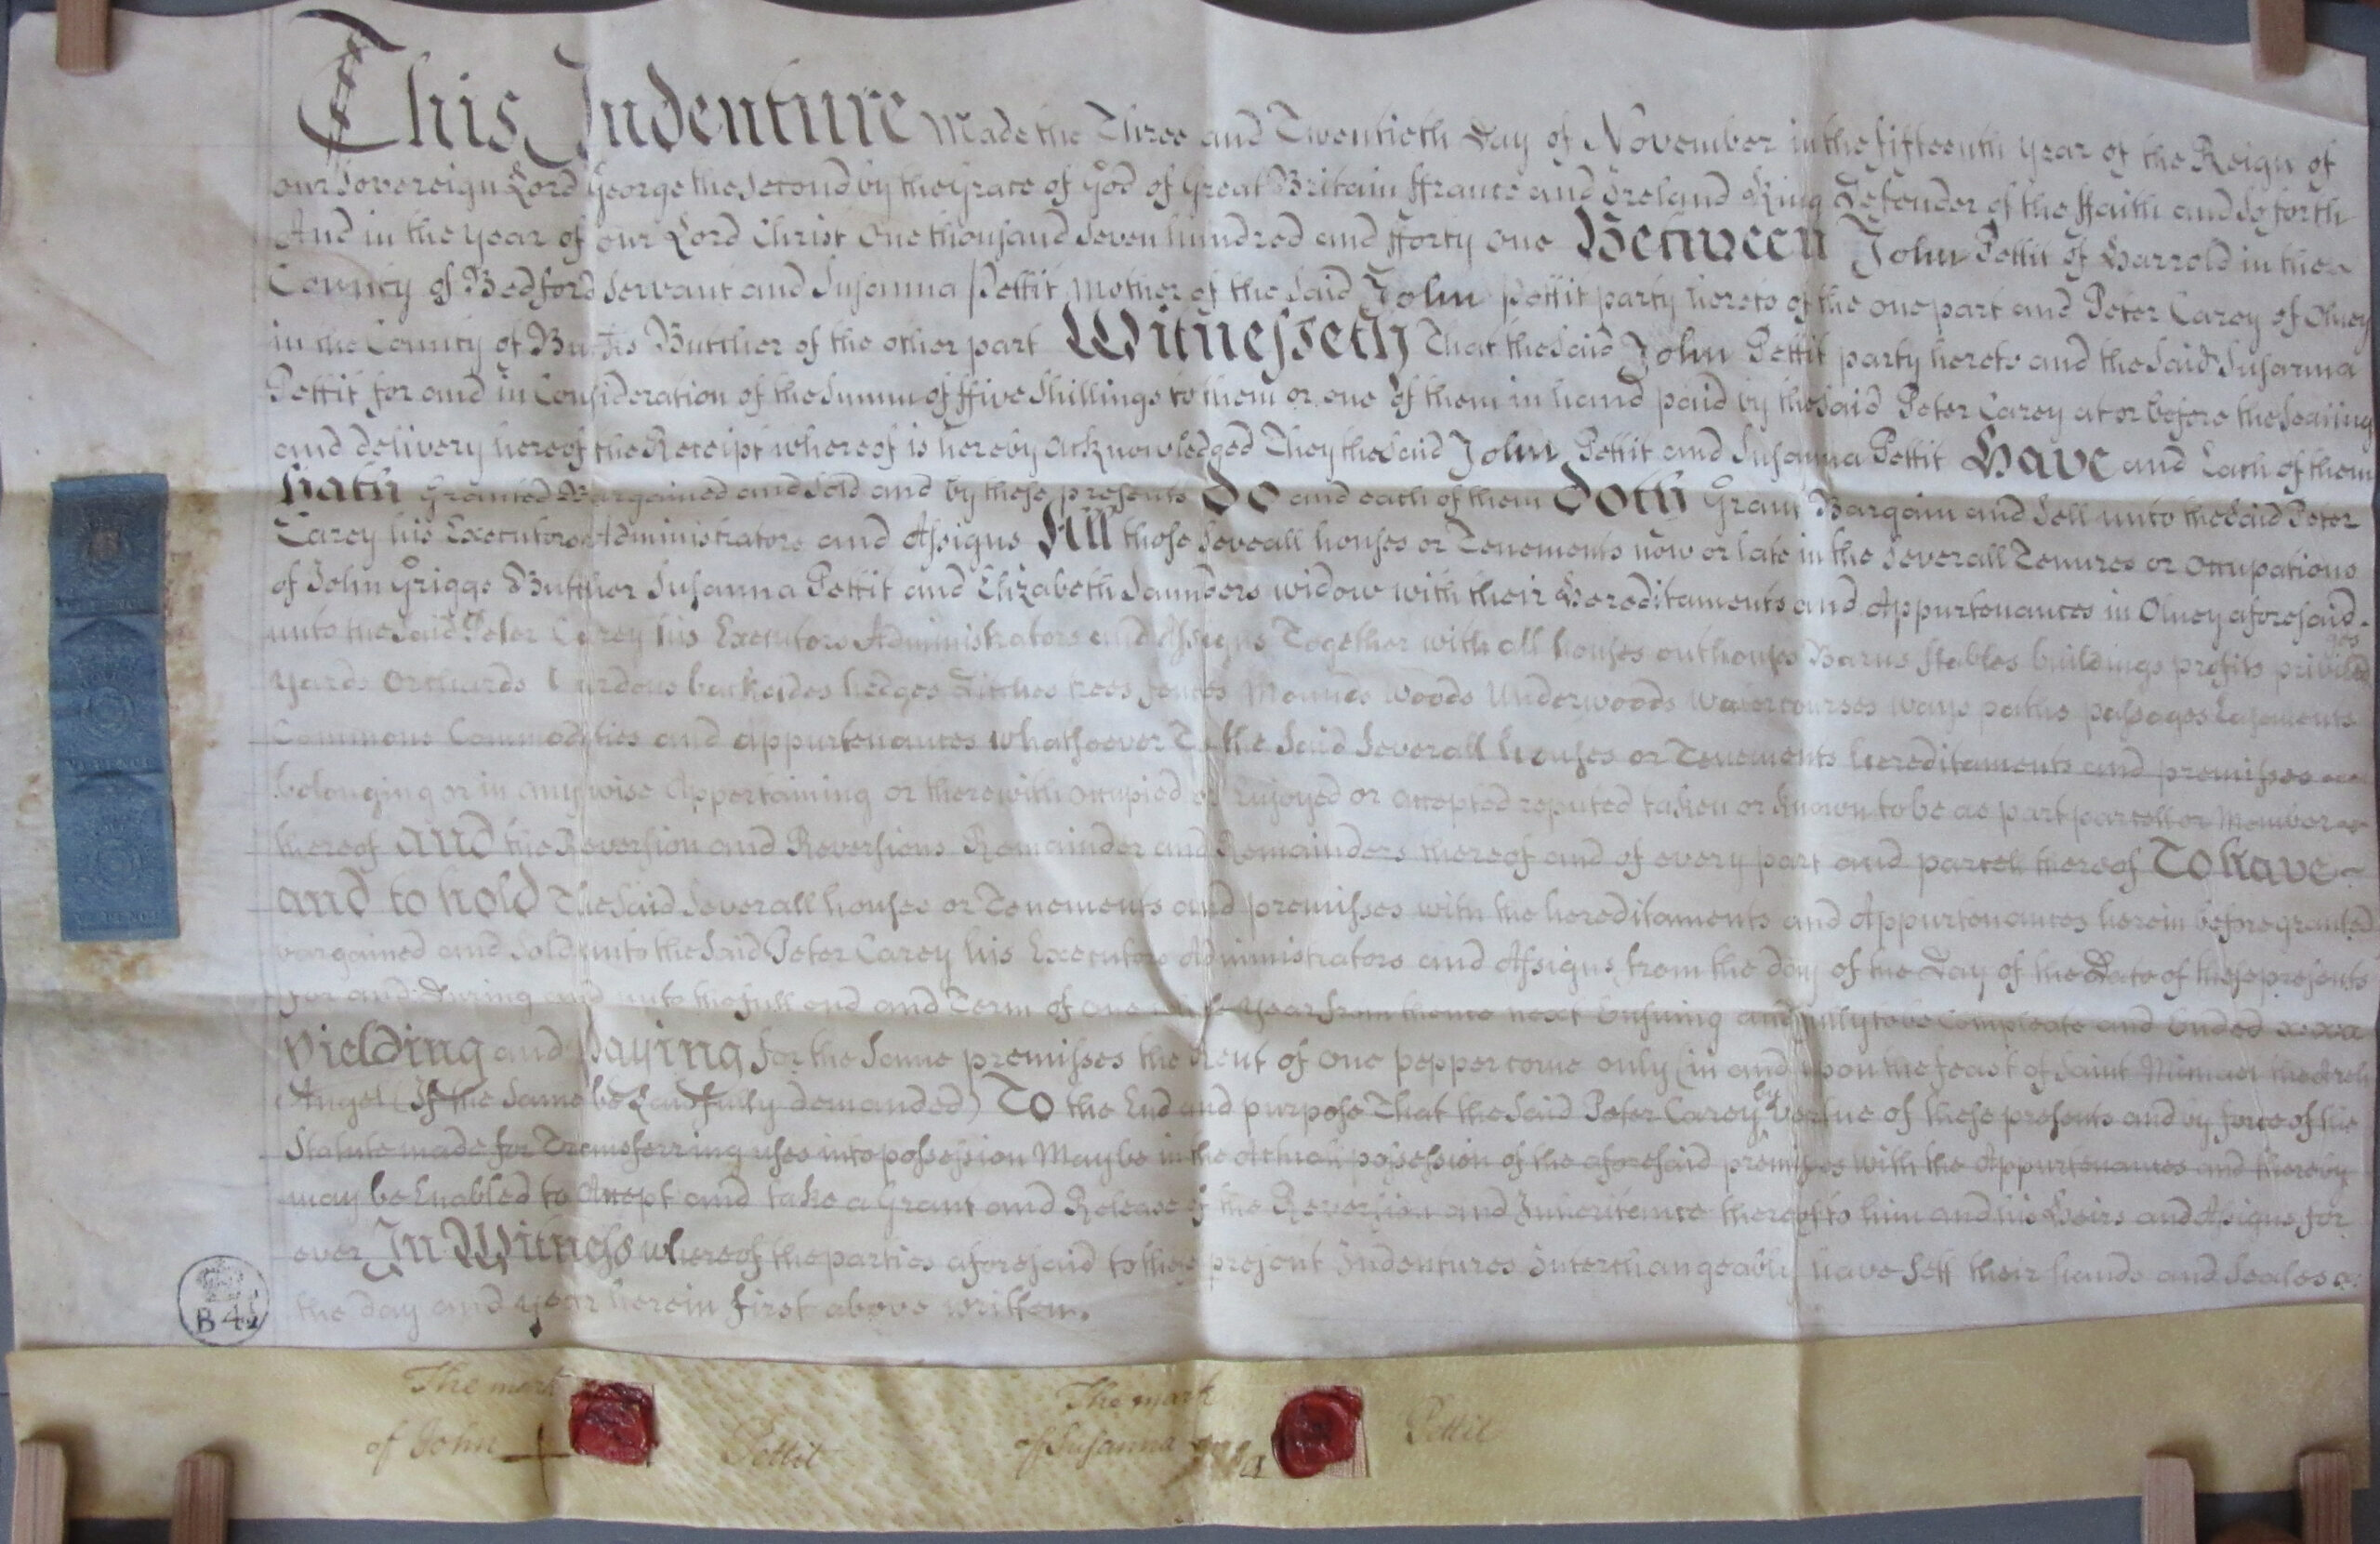 This Indenture Made the Three and Twentieth Day of November in the fifteenth year of the Reign of
our Sovereign Lord George the Second by the Grace of God of Great Britain ffrance and Ireland King Defender of the ffaith and so forth
And in the year of our Lord Christ One thousand Seven hundred and fforty one Between John Pettit of Harrold in the
County of Bedford Servant and Susanna Pettit Mother of the said John Pettit party hereto of the one part and Peter Carey of Olney
in the County of Bucks Butcher of the other part Witnesseth That the said John Pettit party hereto and the said Susanna
Pettit for and in Consideration of the Summ of ffive Shillings to them or one of them in hand paid by the said Peter Carey at or before the Sealing
and delivery hereof the Receipt whereof is hereby acknowledged They the said John Pettit and Susanna Pettit Have and Each of them
hath Granted Bargained and Sold and by these presents Do and each of them Doth Grant Bargain and Sell unto the said Peter
Carey his Executors Administrators and Assigns All those Severall houses or Tenements now or late in the Severall Tenures or Occupations
of John Griggs Butcher Susanna Pettit and Elizabeth Saunders widow with their Hereditaments and Appurtenances in Olney aforesaid
unto the said Peter Carey his Executors Administrators and Assigns Together with all houses outhouses Barns Stables buildings profits priviledges
yards Orchards Gardens backsides hedges Ditches trees fences Mounds Woods Underwoods Watercourses ways paths passages Easements
Commons Commodities and appurtenances whatsoever To the said Severall houses or Tenements hereditaments and premisses
belonging or in any wise Appertaining or therewith occupied or enjoyed or accepted reputed taken or known to be as part parcell or Member
thereof And the Reversion and Reversions Remainder and Remainders thereof and of every part and parcell thereof To have
and to hold The said Severall houses or Tenements and premisses with the hereditaments and Appurtenances herein before granted
bargained and Sold unto the said Peter Carey his Executors Administrators and Assigns from the day of the Day of the Date of these presents
for and During and unto the full end and Term of one whole year from thence next Ensuing and fully to be Compleate and Ended
Yielding and Paying for the Same premisses the Rent of one pepper corne only (in and upon the feast of Saint Michael the Arch
Angel (If the Same be Lawfully demanded) To the End and purpose That the said Peter Carey by Vertue of these presents and by force of the
Statute made for Transferring uses into possession May be in the Actuall possession of the aforesaid premisses with the Appurtenances and thereby
may be Enabled to Accept and take a Grant and Release of the Reversion and Inheritance thereof to him and his Heirs and Assigns for
ever In Witness whereof the parties aforesaid to these present Indentures Interchangeably have Sett their hands and Seales
the day and year herein first above written.
B 42
The mark
of John Pettit
The mark
of Susanna Pettit